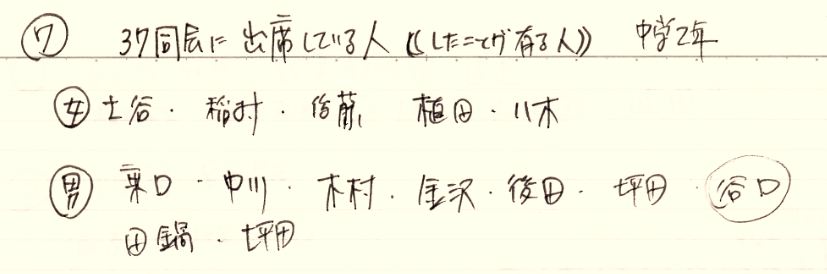 ⑦ 37同会に出席している人((したことが有る人)) 中学2年
女 土谷・稲村・後藤 植田・八木
男 栗口・中川・木村・金沢・後田・坪田・谷口
田鍋・坪田